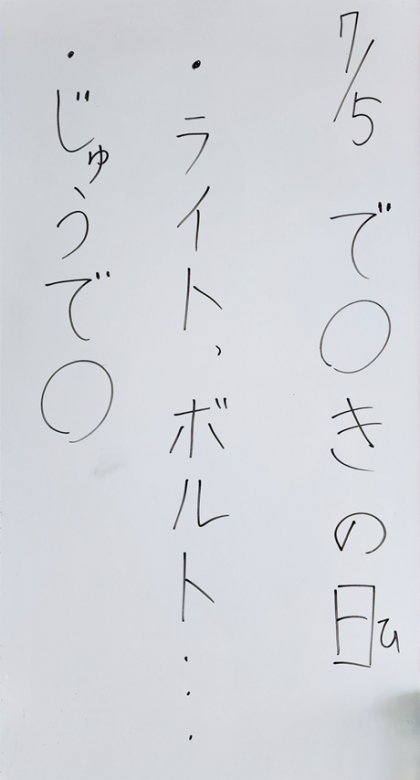 7/5 で○きの日ひ
・ライト、ボルト・・・
・じゅうで○